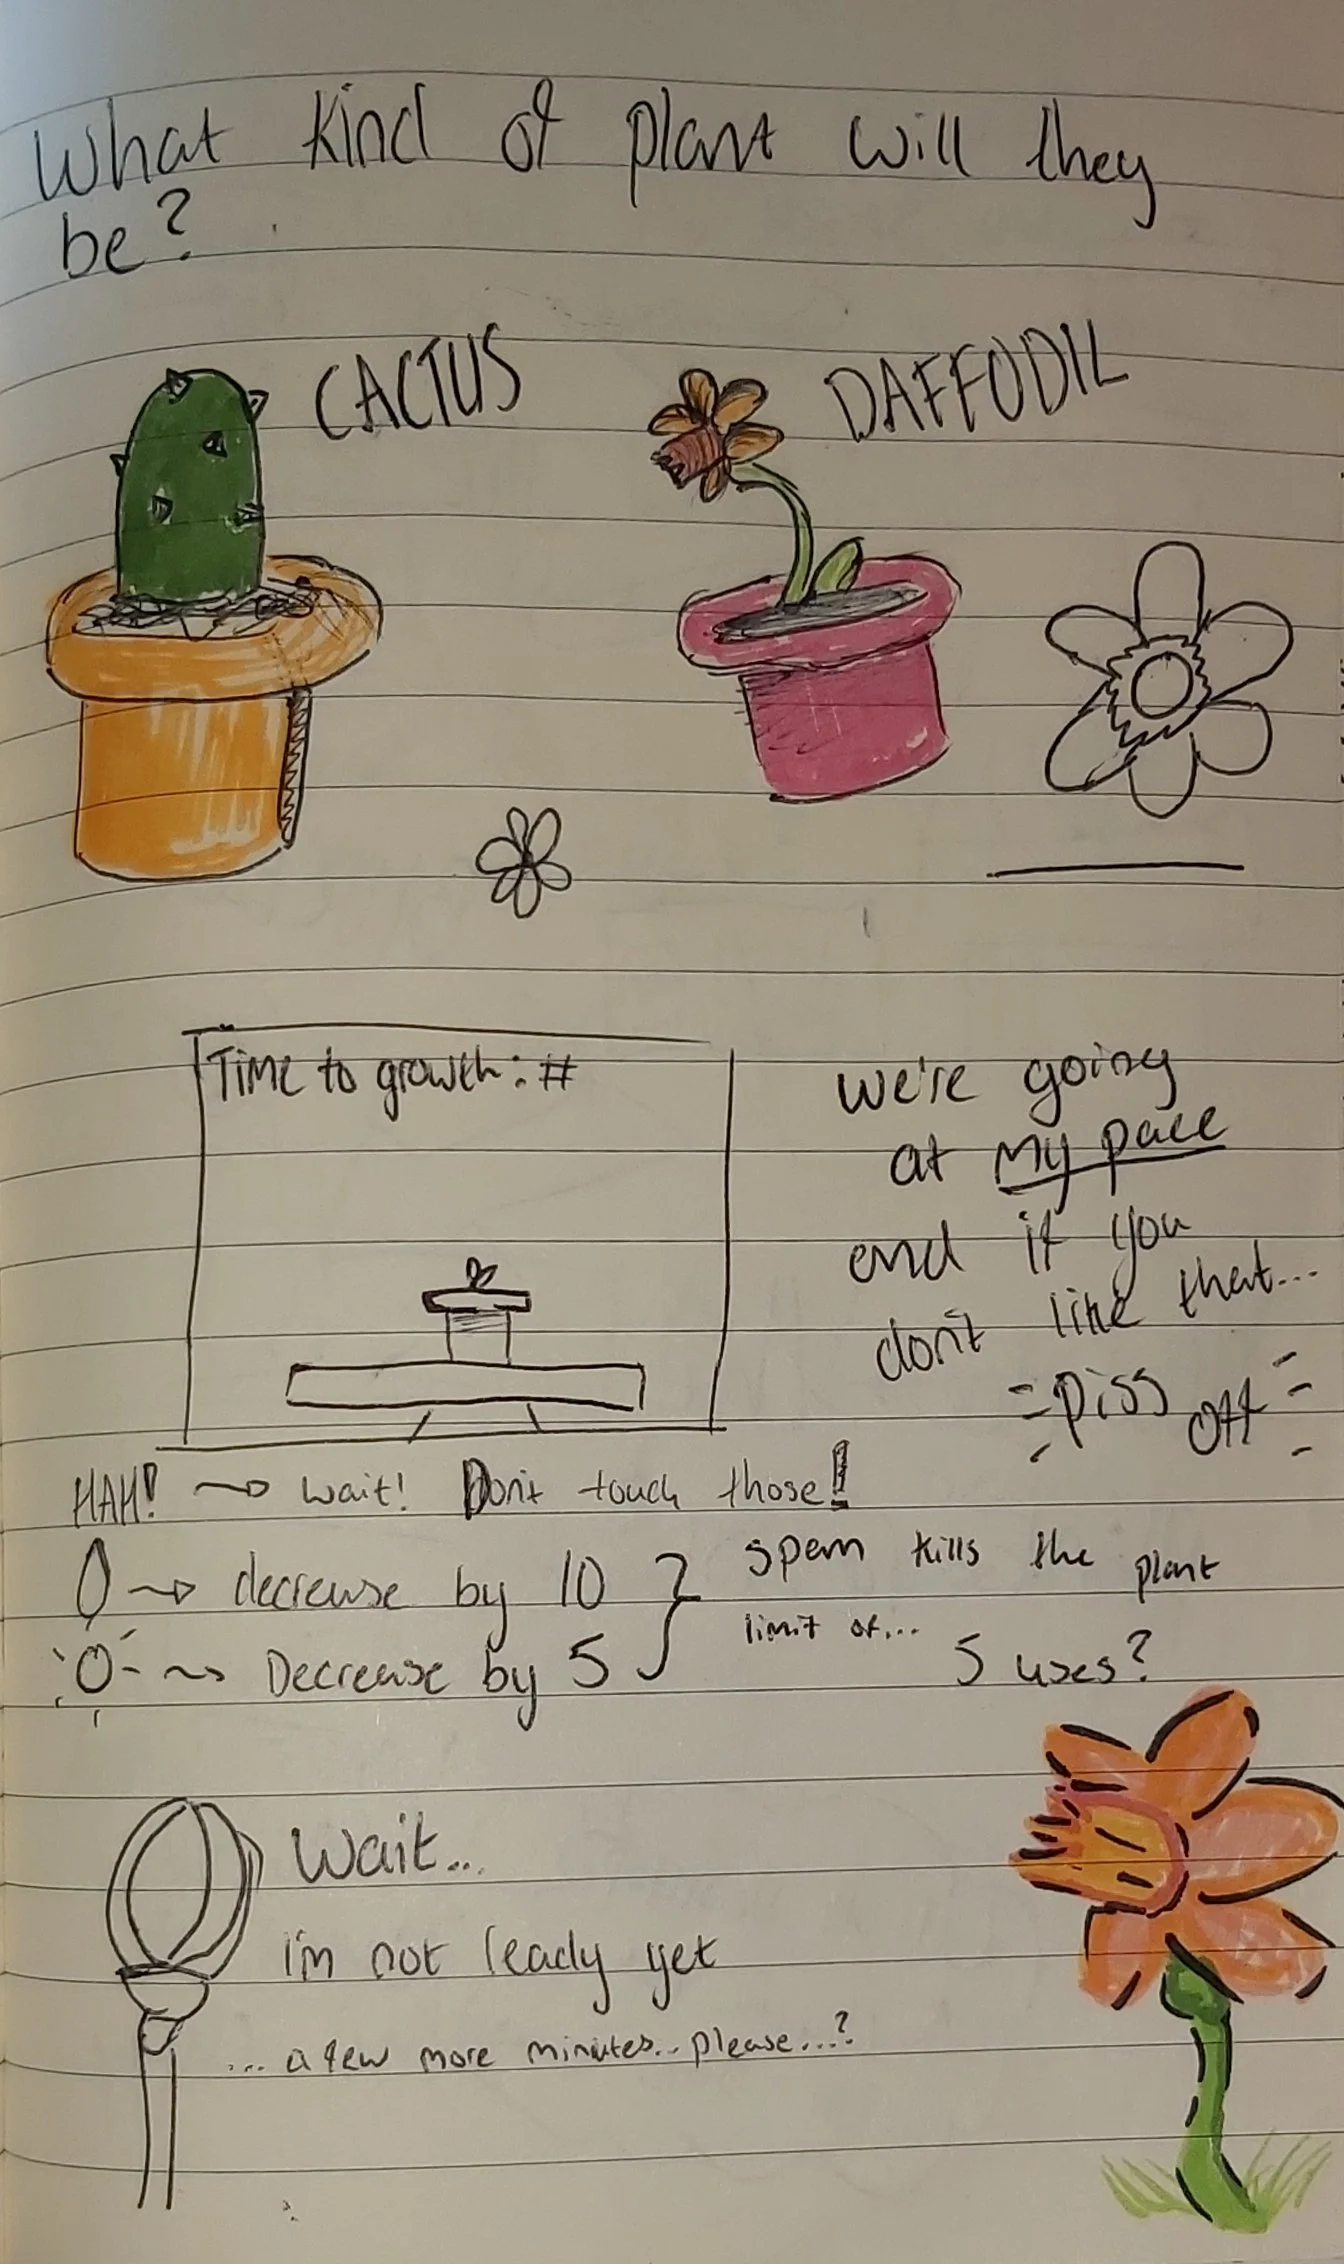 What kind of plant will they
be?
CACTUS
DAFFODIL
Time to growth: #
we're going
at my pace
and if you
don't like that...
piss off
HAH! → wait! Don't touch those!
0 → decrease by 10
0 → Decrease by 5
spam kills the plant
limit of... 5 uses?
Wait...
i'm not ready yet
... a few more minutes.. please...?